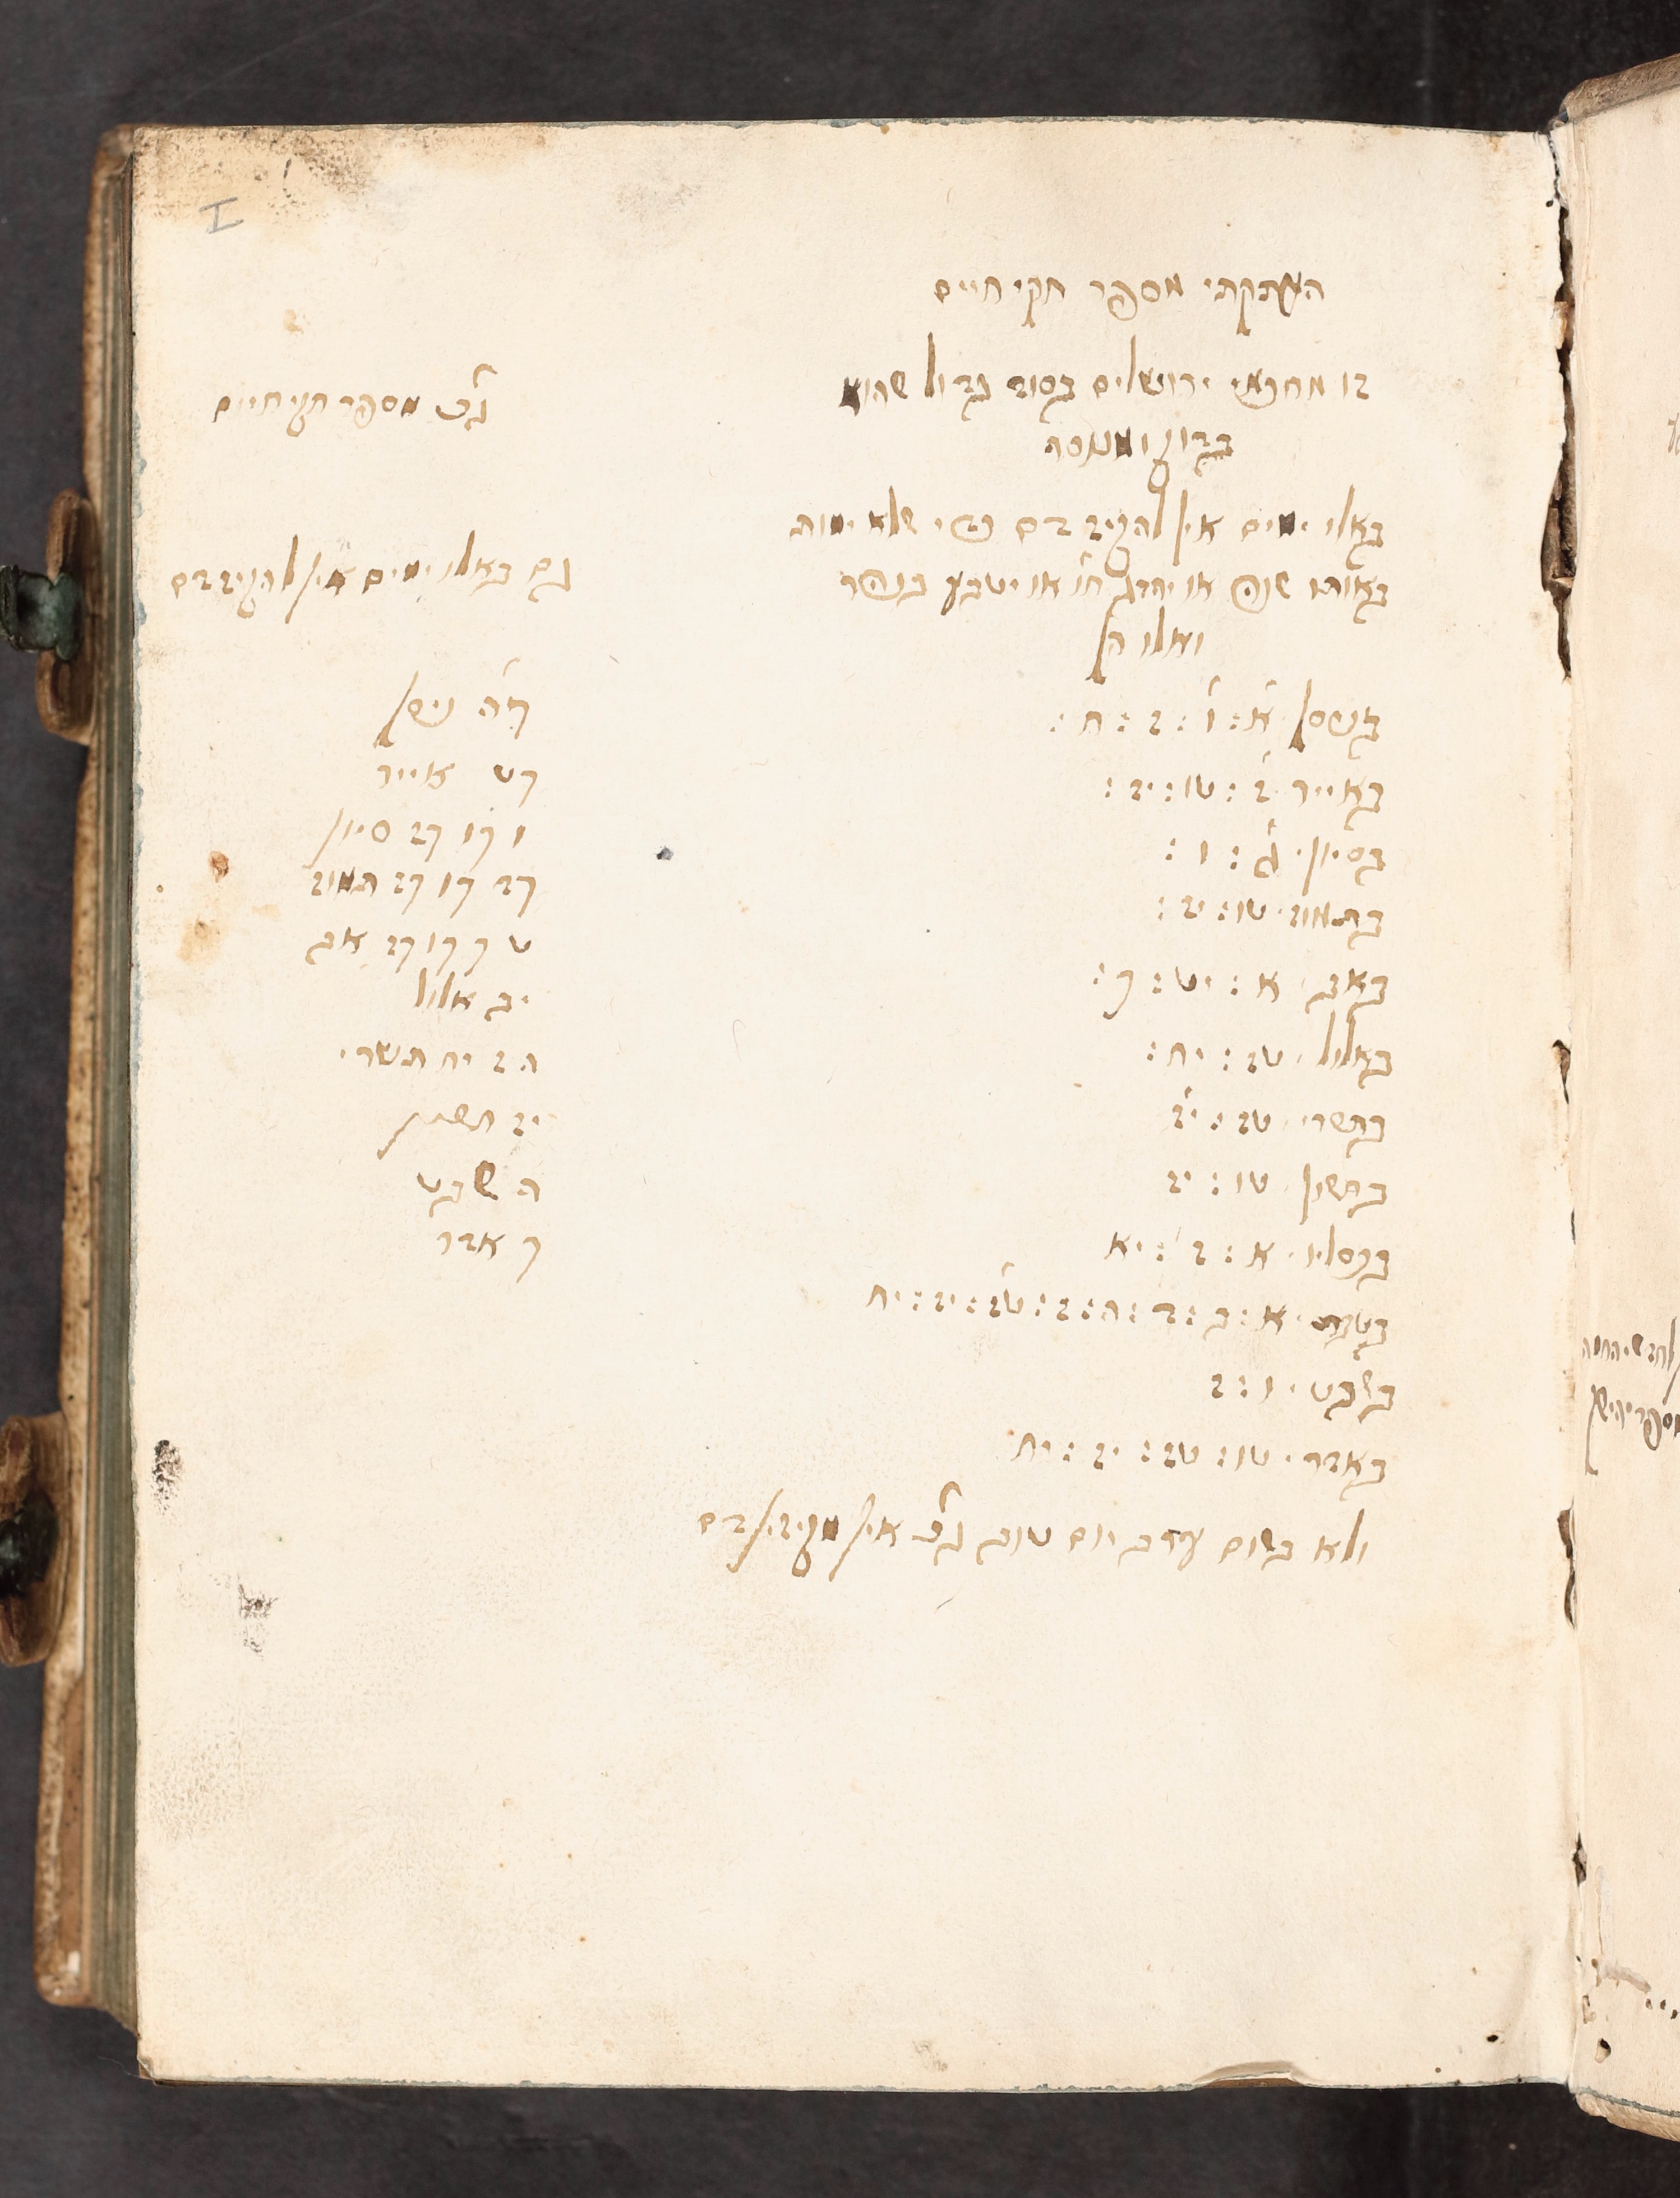 העתקתי מספר חקי חיים
זו מחכמי ירושלים בסוד גדול שהוא
בדוק ומנוסה
באלו ימים אין להקיז דם כדי שלא ימות
באותו שנה או יהרג ח״ו או יטבע בנהר
ואלו הן
בניסן א : ו : ז : ח :
באייר ז : טו : יז :
בסיון ג : ו :
בתמוז טו : יז :
באב א : יט : כ :
באלול טז : יח :
בתשרי טז : יז
בחשון טו : יז
בכסליו א : ז : יא
בטבת א : ב : ד : ה : ז : טז : יז : יח
בשבט ו : ז
באדר טו : טז : יז : יח
ולא בשום ערב יום טוב ג״כ אין מקיזין דם
ג״כ מספר חקי חיים
גם באלו ימים אין להקיז דם
כ״ה ניסן
כט אייר
ו כו כז סיון
כד כו כז תמוז
ט כ כו כז אב
יב אלול
ה ז יח תשרי
יז חשון
ה שבט
כ אדר
I